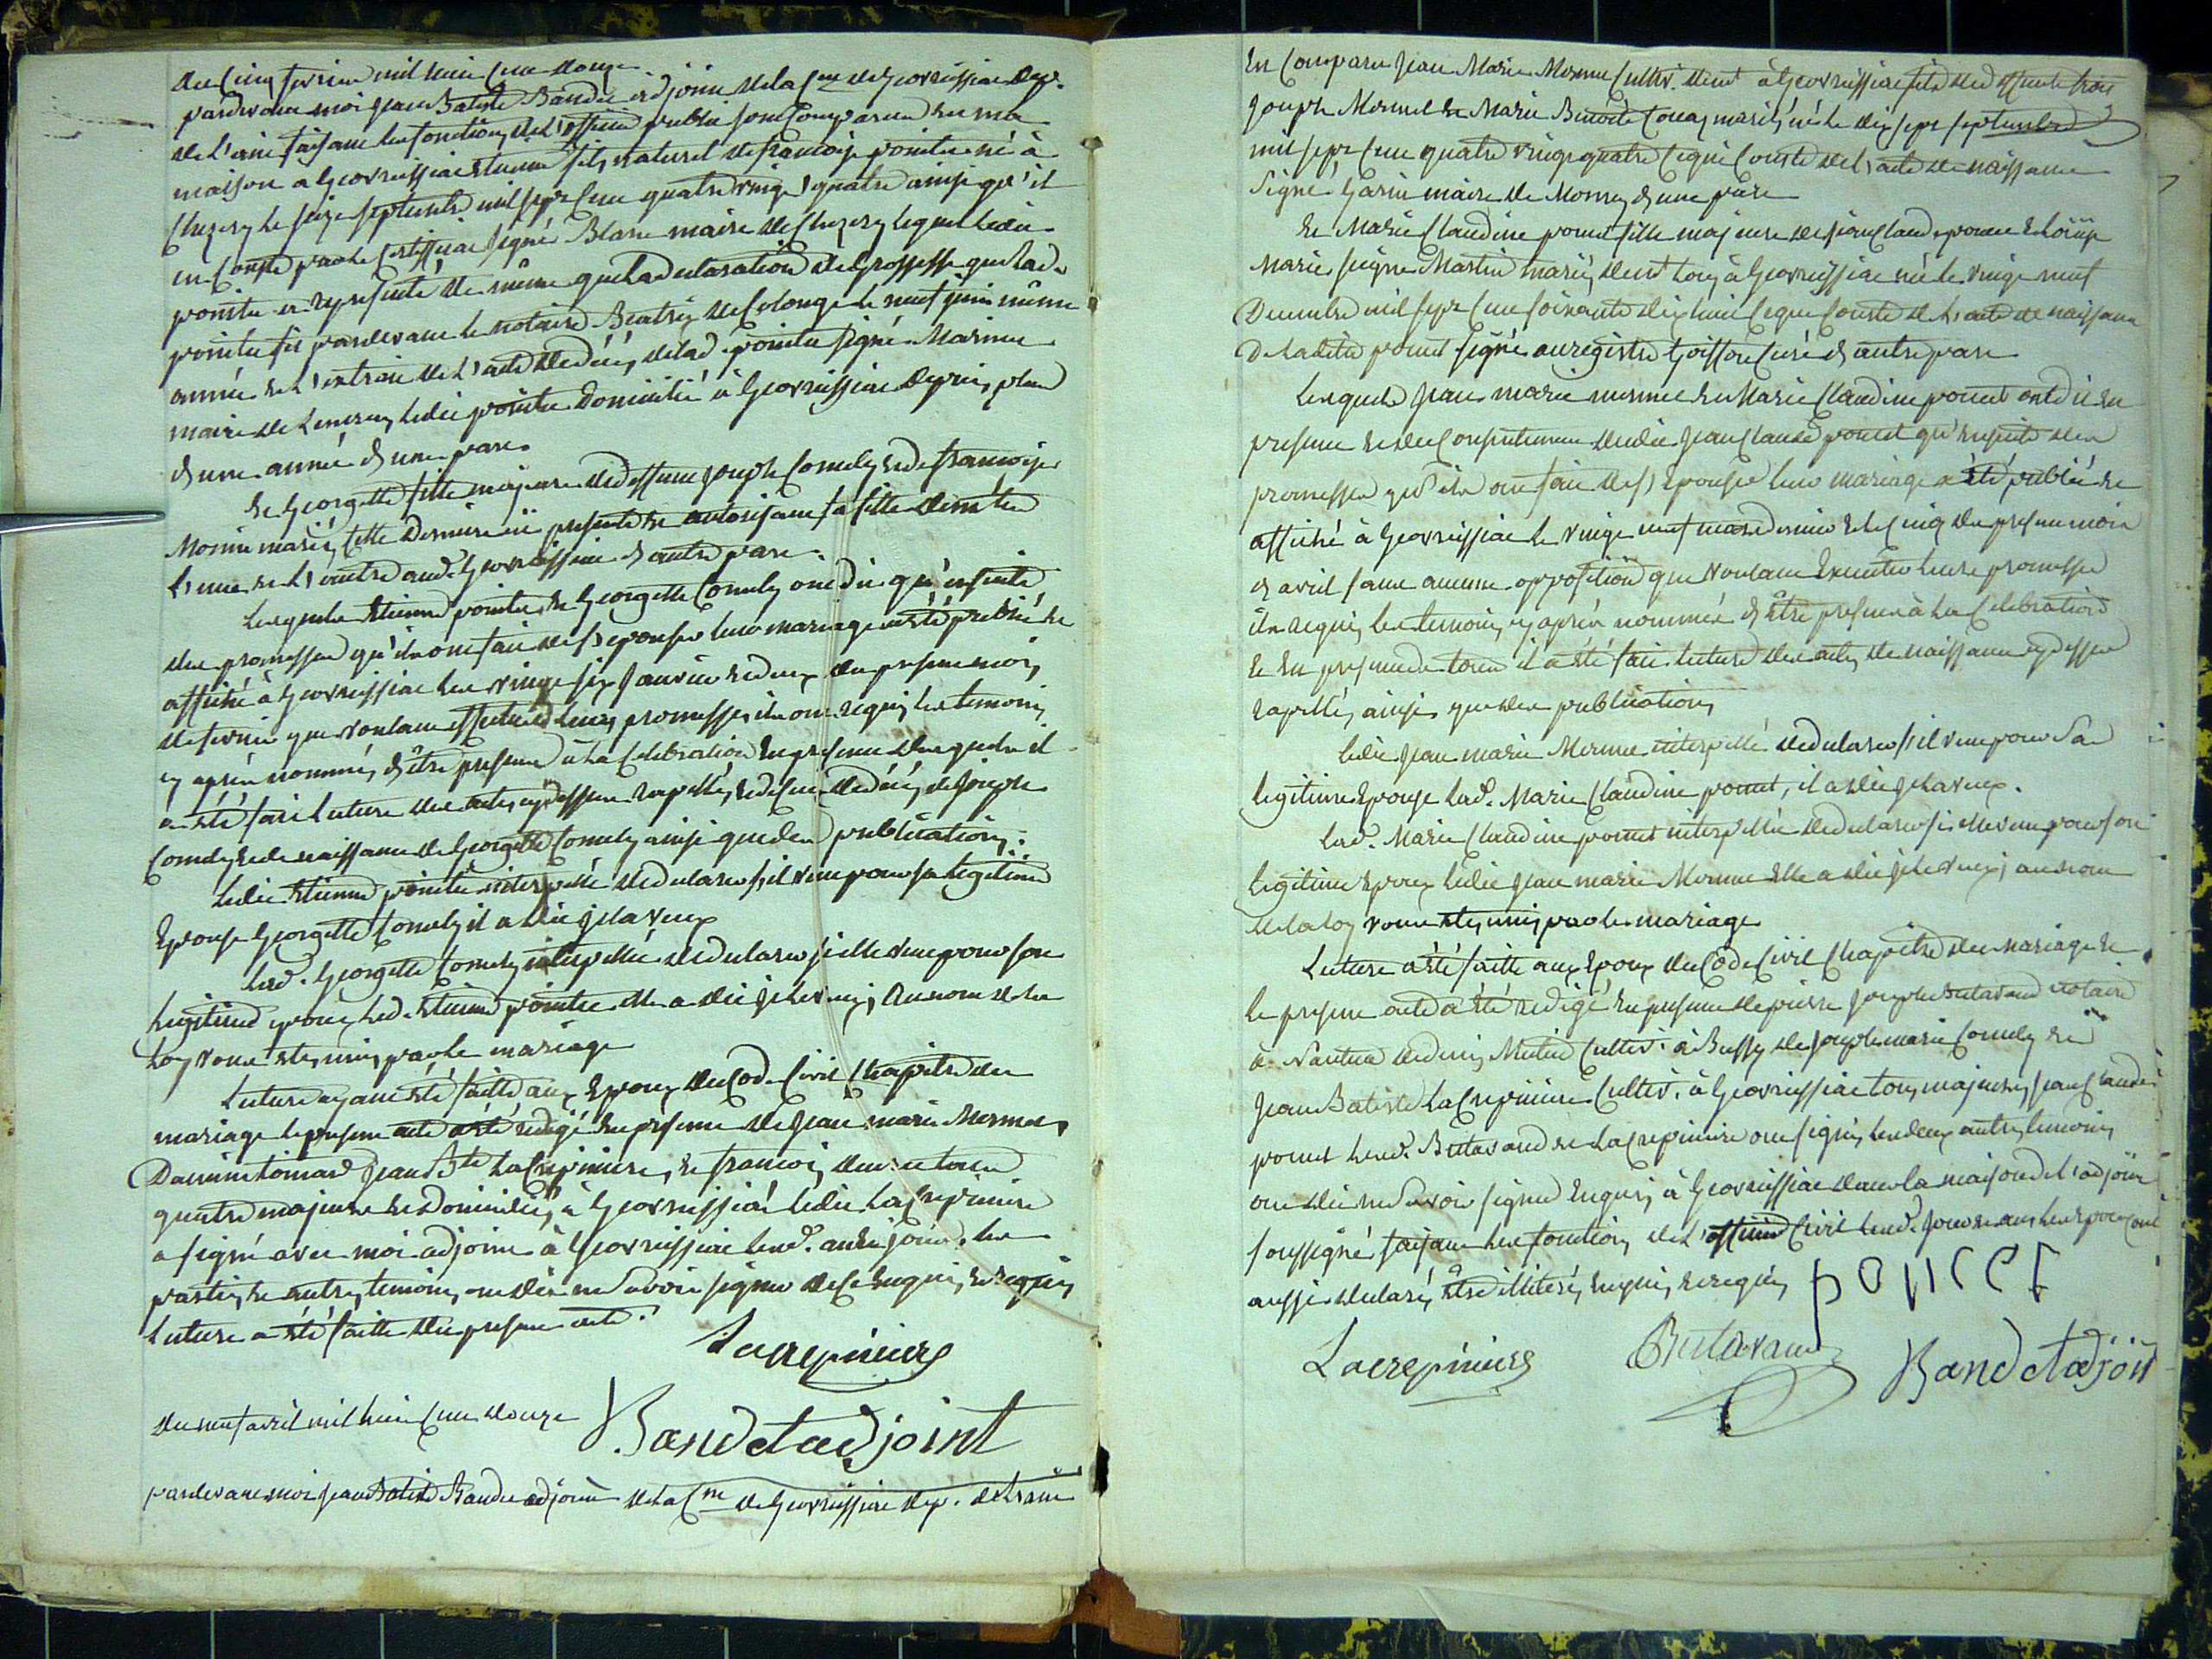 du cinq fevrier mil huit cent douze
pardevant moi Jean Batiste Bandet adjoint de la Cne de Geovreissiat dep.
de l'ain faisant les fonctions de l'officier public sont comparus en ma
maison a Geovreissiat Etienne fils naturel de francoise pointu né à
Chezery le seize septembre mil sept cent quatre vingt quatre ainsi qu'il
en conste par le certificat signé Blanc maire de Chezery lequel ledit
pointu a representé de même que la declaration de Grossesse que lad.
pointu fit pardevant le notaire Beatrix de Colonge le neuf juin même
année et l'extrait de l'acte de décès de lad. pointu signé Marinet
maire de ledit pointu Domicilié à Geovreissiat depuis plus
d'une année d'une part
Et Georgette fille majeure de deffunt Joseph Comely et de francoise
Monin mariés cette derniere ici presente et autorisant sa fille demeurant
l'une et l'autre aud. Geovreissiat d'autre part.
Lesquels Etienne pointu et Georgette Comely ont dit qu'ensuite
des promesses qu'ils ont fait de s'epouser leur mariage a été publié et
affiché à Geovreissiat les vingt six Janvier et deux du present mois
de fevrier que voulant effectuer leurs promesses ils ont requis les temoins
cy après nommés d'être present à la celebration en presence desquels il
a été fait lecture des actes cydessus rapellés, et de celui de décès de Joseph
Comely et de naissance de Georgette Comely ainsi que des publications.
Ledit Etienne pointu interpellé de declarer s'il veut pour sa legitime
Epouse Georgette Comely il a dit je la veux
Lad. Georgette Comely interpellée de declarer si elle veut pour son
legitime epoux led. Etienne pointu elle a dit je le veux; Au nom de la
loy vous etes unis par le mariage
Lecture ayant été faitte aux Epoux du Code Civil Chapitre du
mariage le present acte a été redigé en presence de Jean marie Mermet
Tornard Jean Bte Lacrepiniere, et francois tous
quatre majeurs et Domiciliés à Geovreissiat ledit Lacrepiniere
a signé avec moi adjoint à Geovreissiat lesd. an et jour. les
parties et autres temoins ont dit ne savoir signer de ce enquis et requis
Lecture a été faitte du present acte.
Lacrepiniere
du neuf avril mil huit cent douze Bandet adjoint
pardevant moi Jean Batiste Bandet adjoint de la Cne de Geovreissiat dep. de l'ain
Est comparu Jean Marie Mermet Cultiv. demt à Geovreissiat fils de deffunt
Joseph Mermet et Marie Benoite mariés, né le dix sept septembre
mil sept cent quatre vingt quatre ce qui conste de l'acte de naissance
signé Garin maire de Mornay d'une part
Et Marie Claudine poncet fille majeure de Jean Claude poncet et Louise
Marie Martin mariés demt tous à Geovreissiat née le vingt neuf
Decembre mil sept cent soixante dix huit ce que conste de l'acte de naissance
De ladite poncet signé au registre Goiffon curé d'autre part
Lesquels Jean marie mermet et Marie Claudine poncet ont dit en
presence et du consentement dudit Jean Claude poncet qu'ensuite des
promesses qu'ils ont fait de s'Epouser leur mariage a été publié et
affiché à Geovreissiat le vingt neuf mars dernier et le cinq du present mois
d'avril sans aucune opposition que voulant Executer leurs promesses
ils requis les temoins cy après nommés d'être present à la celebration
et en presence de tous il a été fait lecture des actes de naissance cydessus
rapellés, ainsi que des publications
Ledit Jean marie Mermet interpellé de declarer s'il veut pour sa
legitime Epouse lad. Marie Claudine poncet, il a dit je la veux.
Lad. Marie Claudine poncet interpellée de declarer si elle veut pour son
legitime Epoux ledit Jean marie Mermet elle a dit je le veux; au nom
de la loy vous etes unis par le mariage
Lecture a été faitte aux Epoux du Code Civil Chapitre du mariage et
le present acte a été redigé en presence de pierre Joseph Butavand notaire
à Nantua de denis Cultiv. à Bussy de Joseph marie Comely et
Jean Batiste Lacrepiniere Cultiv. à Geovreissiat tous majeurs, Jean Claude
poncet lesd. Butavand et Lacrepiniere ont signés, les deux autres temoins
ont dit ne savoir signer Enquis à Geovreissiat dans la maison de l'adjoint
soussigné faisant les fonctions de l'officier Civil lesd. jour et an les Epoux ont
aussi declarés être illiterés Enquis et requis poncet
Lacrepiniere Butavand Bandet adjoit